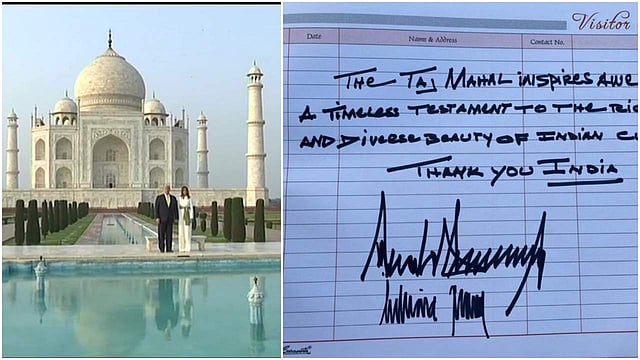 Visitor
Date Name & Address Contact No.
THE TAJ MAHAL INSPIRES AWE
A TIMELESS TESTAMENT TO THE RIC
AND DIVERSE BEAUTY OF INDIAN CU
THANK YOU INDIA